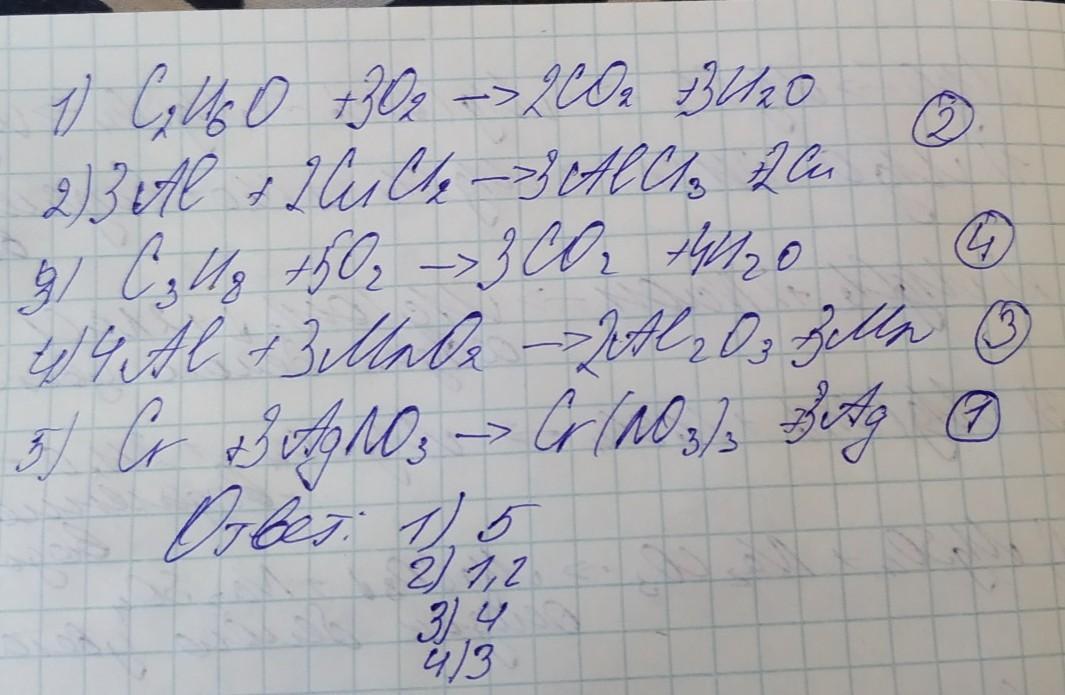 1) C₂H₆O +3O₂ → 2CO₂ +3H₂O ②
2) 3Al + 2CuCl₂ → 3AlCl₃ +2Cu
3) C₃H₈ +5O₂ → 3CO₂ +4H₂O ④
4) 4Al + 3MnO₂ → 2Al₂O₃ +3Mn ③
5) Cr +3AgNO₃ → Cr(NO₃)₃ +3Ag ①
Ответ: 1) 5
2) 1,2
3) 4
4) 3